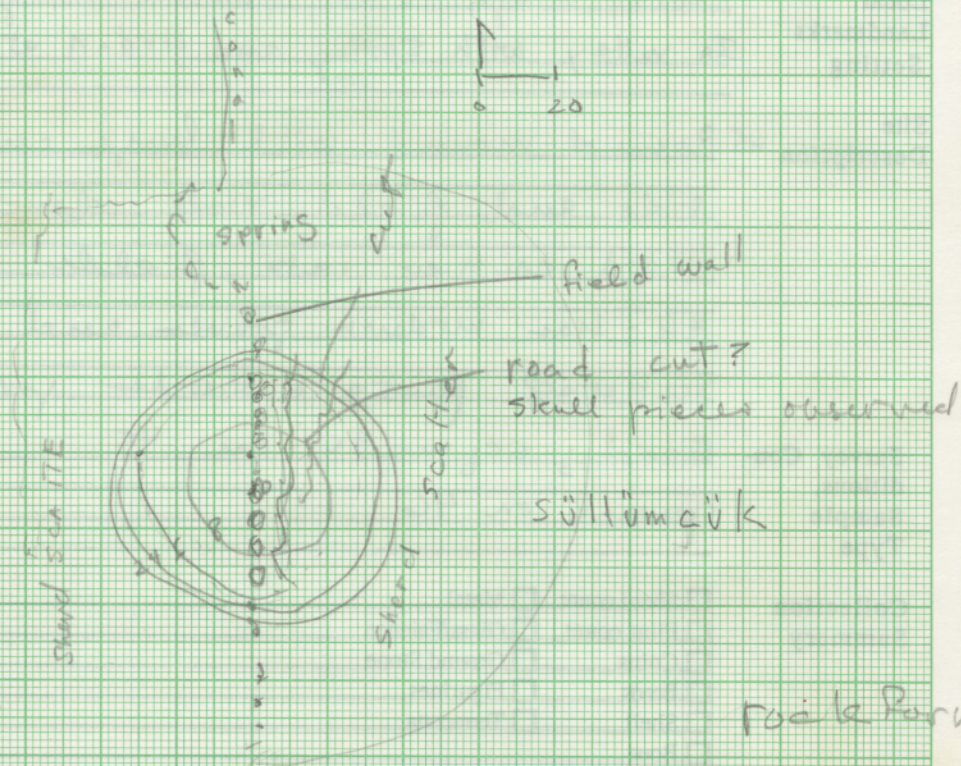 canal
0 20
spring
field wall
road cut?
skull pieces observed
süllümcük
Sherd scatter
8
2
rock